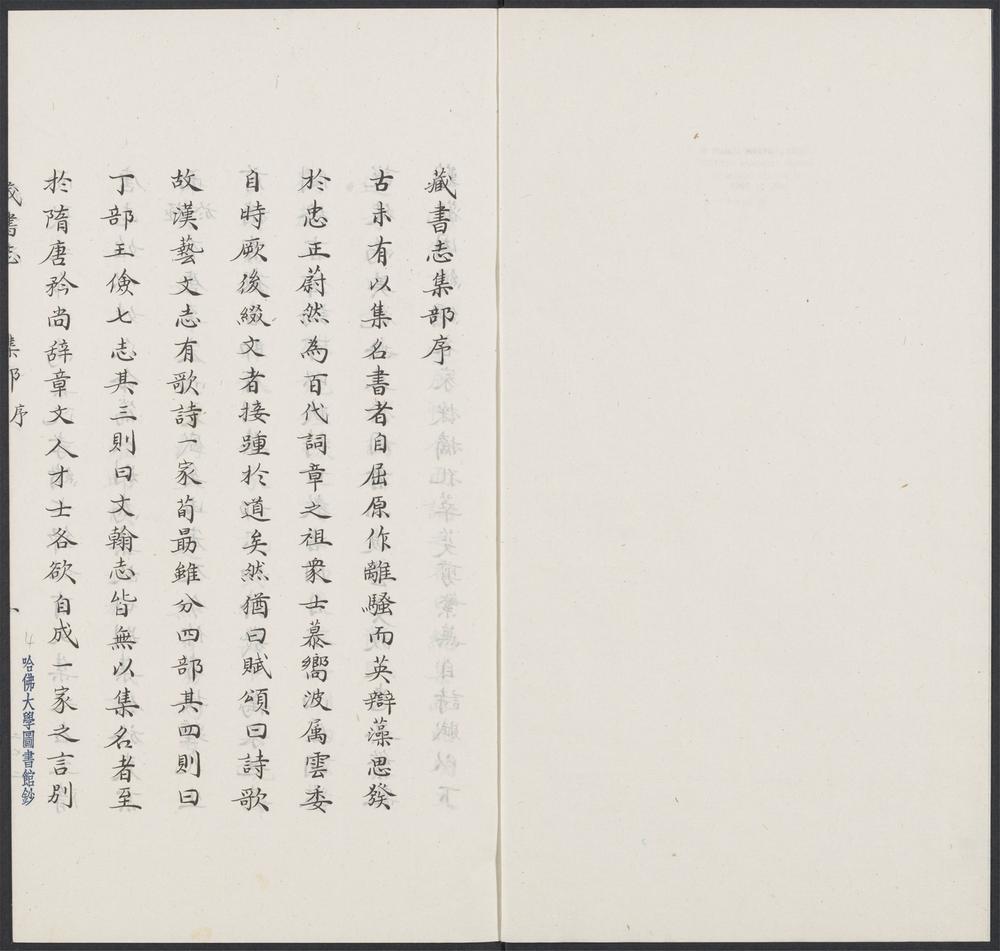 藏書志集部序
古未有以集名書者自屈原作離騷而英辯藻思發
於忠正蔚然為百代詞章之祖衆士慕嚮波属雲委
自時厥後綴文者接踵於道矣然猶曰賦頌曰詩歌
故漢藝文志有歌詩一家荀勗雖分四部其四則曰
丁部王儉七志其三則曰文翰志皆無以集名者至
於隋唐矜尚辞章文人才士各欲自成一家之言別
藏書志 集部 序 一
哈佛大學圖書館鈔